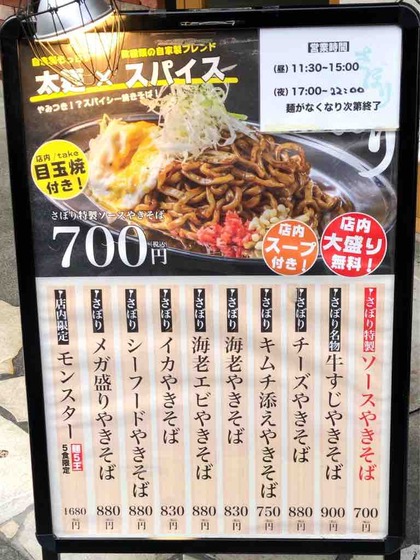 数種類の自家製ブレンド
太麺×スパイス
やみつき!?スパイシー焼きそば!
営業時間
(昼) 11:30-15:00
(夜) 17:00~22:00
麺がなくなり次第終了
さぼり
店内/take
目玉焼
付き!
さぼり特製ソースやきそば
700円(税込)
店内
スープ
付き!
店内
大盛り
無料!
さぼり特製 ソースやきそば 700円
さぼり名物 牛すじやきそば 900円
さぼり チーズやきそば 880円
さぼり キムチ添えやきそば 750円
さぼり 海老やきそば 830円
さぼり 海老エビやきそば 880円
さぼり イカやきそば 830円
さぼり シーフードやきそば 880円
さぼり メガ盛りやきそば 880円
店内限定 モンスター 麺5玉 5食限定 1680円